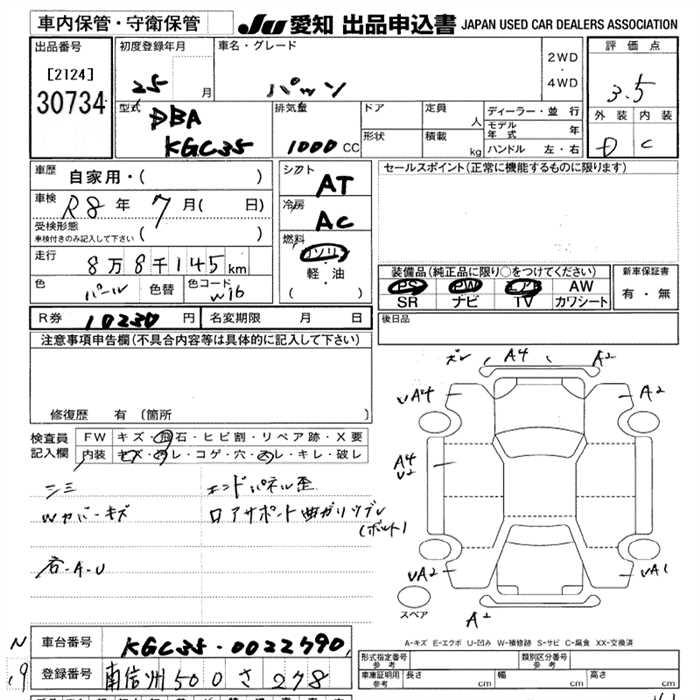 車内保管・守衛保管
JU 愛知 出品申込書 JAPAN USED CAR DEALERS ASSOCIATION
出品番号 初度登録年月 車名・グレード 2WD・4WD 評価点
[2124]
30734
25 月 パッソ 3.5
型式 DBA KGC35
排気量 1000 CC
ドア 定員 人 ディーラー・並行
モデル年式 年
形状 積載 kg ハンドル 左・右
外装 内装
D C
車歴 自家用・( )
車検 R8年 7月( 日)
受検形態
車検付きのみ記入して下さい ( )
走行 8万8千145km
色 パール 色替 色コード W16
シフト AT
冷房 AC
燃料 ガソリン
軽・油
( )
セールスポイント(正常に機能するものに限ります)
装備品(純正品に限り○をつけてください)
PS PW エアB AW
SR ナビ TV カワシート
新車保証書
有・無
R券 10230円 名変期限 月 日
後日品
注意事項申告欄(不具合内容等は具体的に記入して下さい)
修復歴 有(箇所 )
検査員記入欄
FW キズ・飛石・ヒビ割・リペア跡・X要
内装 キズ・汚レ・コゲ・穴・スレ・キレ・破レ
Wカバーキズ
エンドパネル歪
ロアサポート曲ガリツブレ
(ボルト)
右-A-U
ズレ A4 A2
UA4 A2
A4
U2
UA2 UA1
スペア A2
A-キズ E-エクボ U-凹み W-補修跡 S-サビ C-腐食 XX-交換済
車台番号 KGC35-0022590
登録番号 南信州 500 さ 278
型式指定番号 参考 類別区分番号 参考
車庫証明用参考 長さ cm 幅 cm 高さ cm